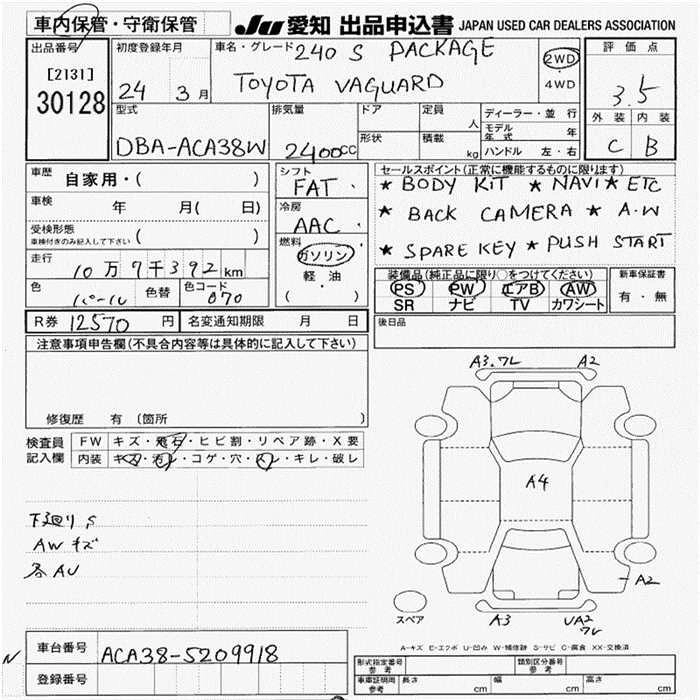 車内保管・守衛保管
JU 愛知 出品申込書 JAPAN USED CAR DEALERS ASSOCIATION
出品番号
[2131]
30128
初度登録年月
24 3月
車名・グレード 240 S PACKAGE
TOYOTA VAGUARD
2WD
・
4WD
評価点
3.5
外装 内装
C B
型式
DBA-ACA38W
排気量
2400cc
ドア
形状
定員
人
積載
kg
ディーラー・並 行
モデル年式 年
ハンドル 左・右
車歴 自家用・( )
車検 年 月( 日)
受検形態
車検付きのみ記入して下さい ( )
走行 10万7千392km
色 パール 色替 色コード 070
シフト
FAT
冷房
AAC
燃料
ガソリン
・
軽油
( ・ )
セールスポイント(正常に機能するものに限ります)
★ BODY KIT ★ NAVI ★ ETC
★ BACK CAMERA ★ A.W
★ SPARE KEY ★ PUSH START
装備品(純正品に限り○をつけてください)
PS PW エアB AW
SR ナビ TV カワシート
新車保証書
有・無
R券 12570円 名変通知期限 月 日
後日品
注意事項申告欄(不具合内容等は具体的に記入して下さい)
修復歴 有 (箇所 )
検査員記入欄
FW キズ・飛石・ヒビ割・リペア跡・X要
内装 キズ・汚レ・コゲ・穴・スレ・キレ・破レ
下廻り S
AW キズ
各AU
A3.ワレ A2
A4
A2
A3 UA2
ワレ
スペア
A-キズ E-エクボ U-凹み W-補修跡 S-サビ C-腐食 XX-交換済
N
車台番号 ACA38-5209918
登録番号
形式指定番号
参考
類別区分番号
参考
車車証明用
参考
長さ cm 幅 cm 高さ cm